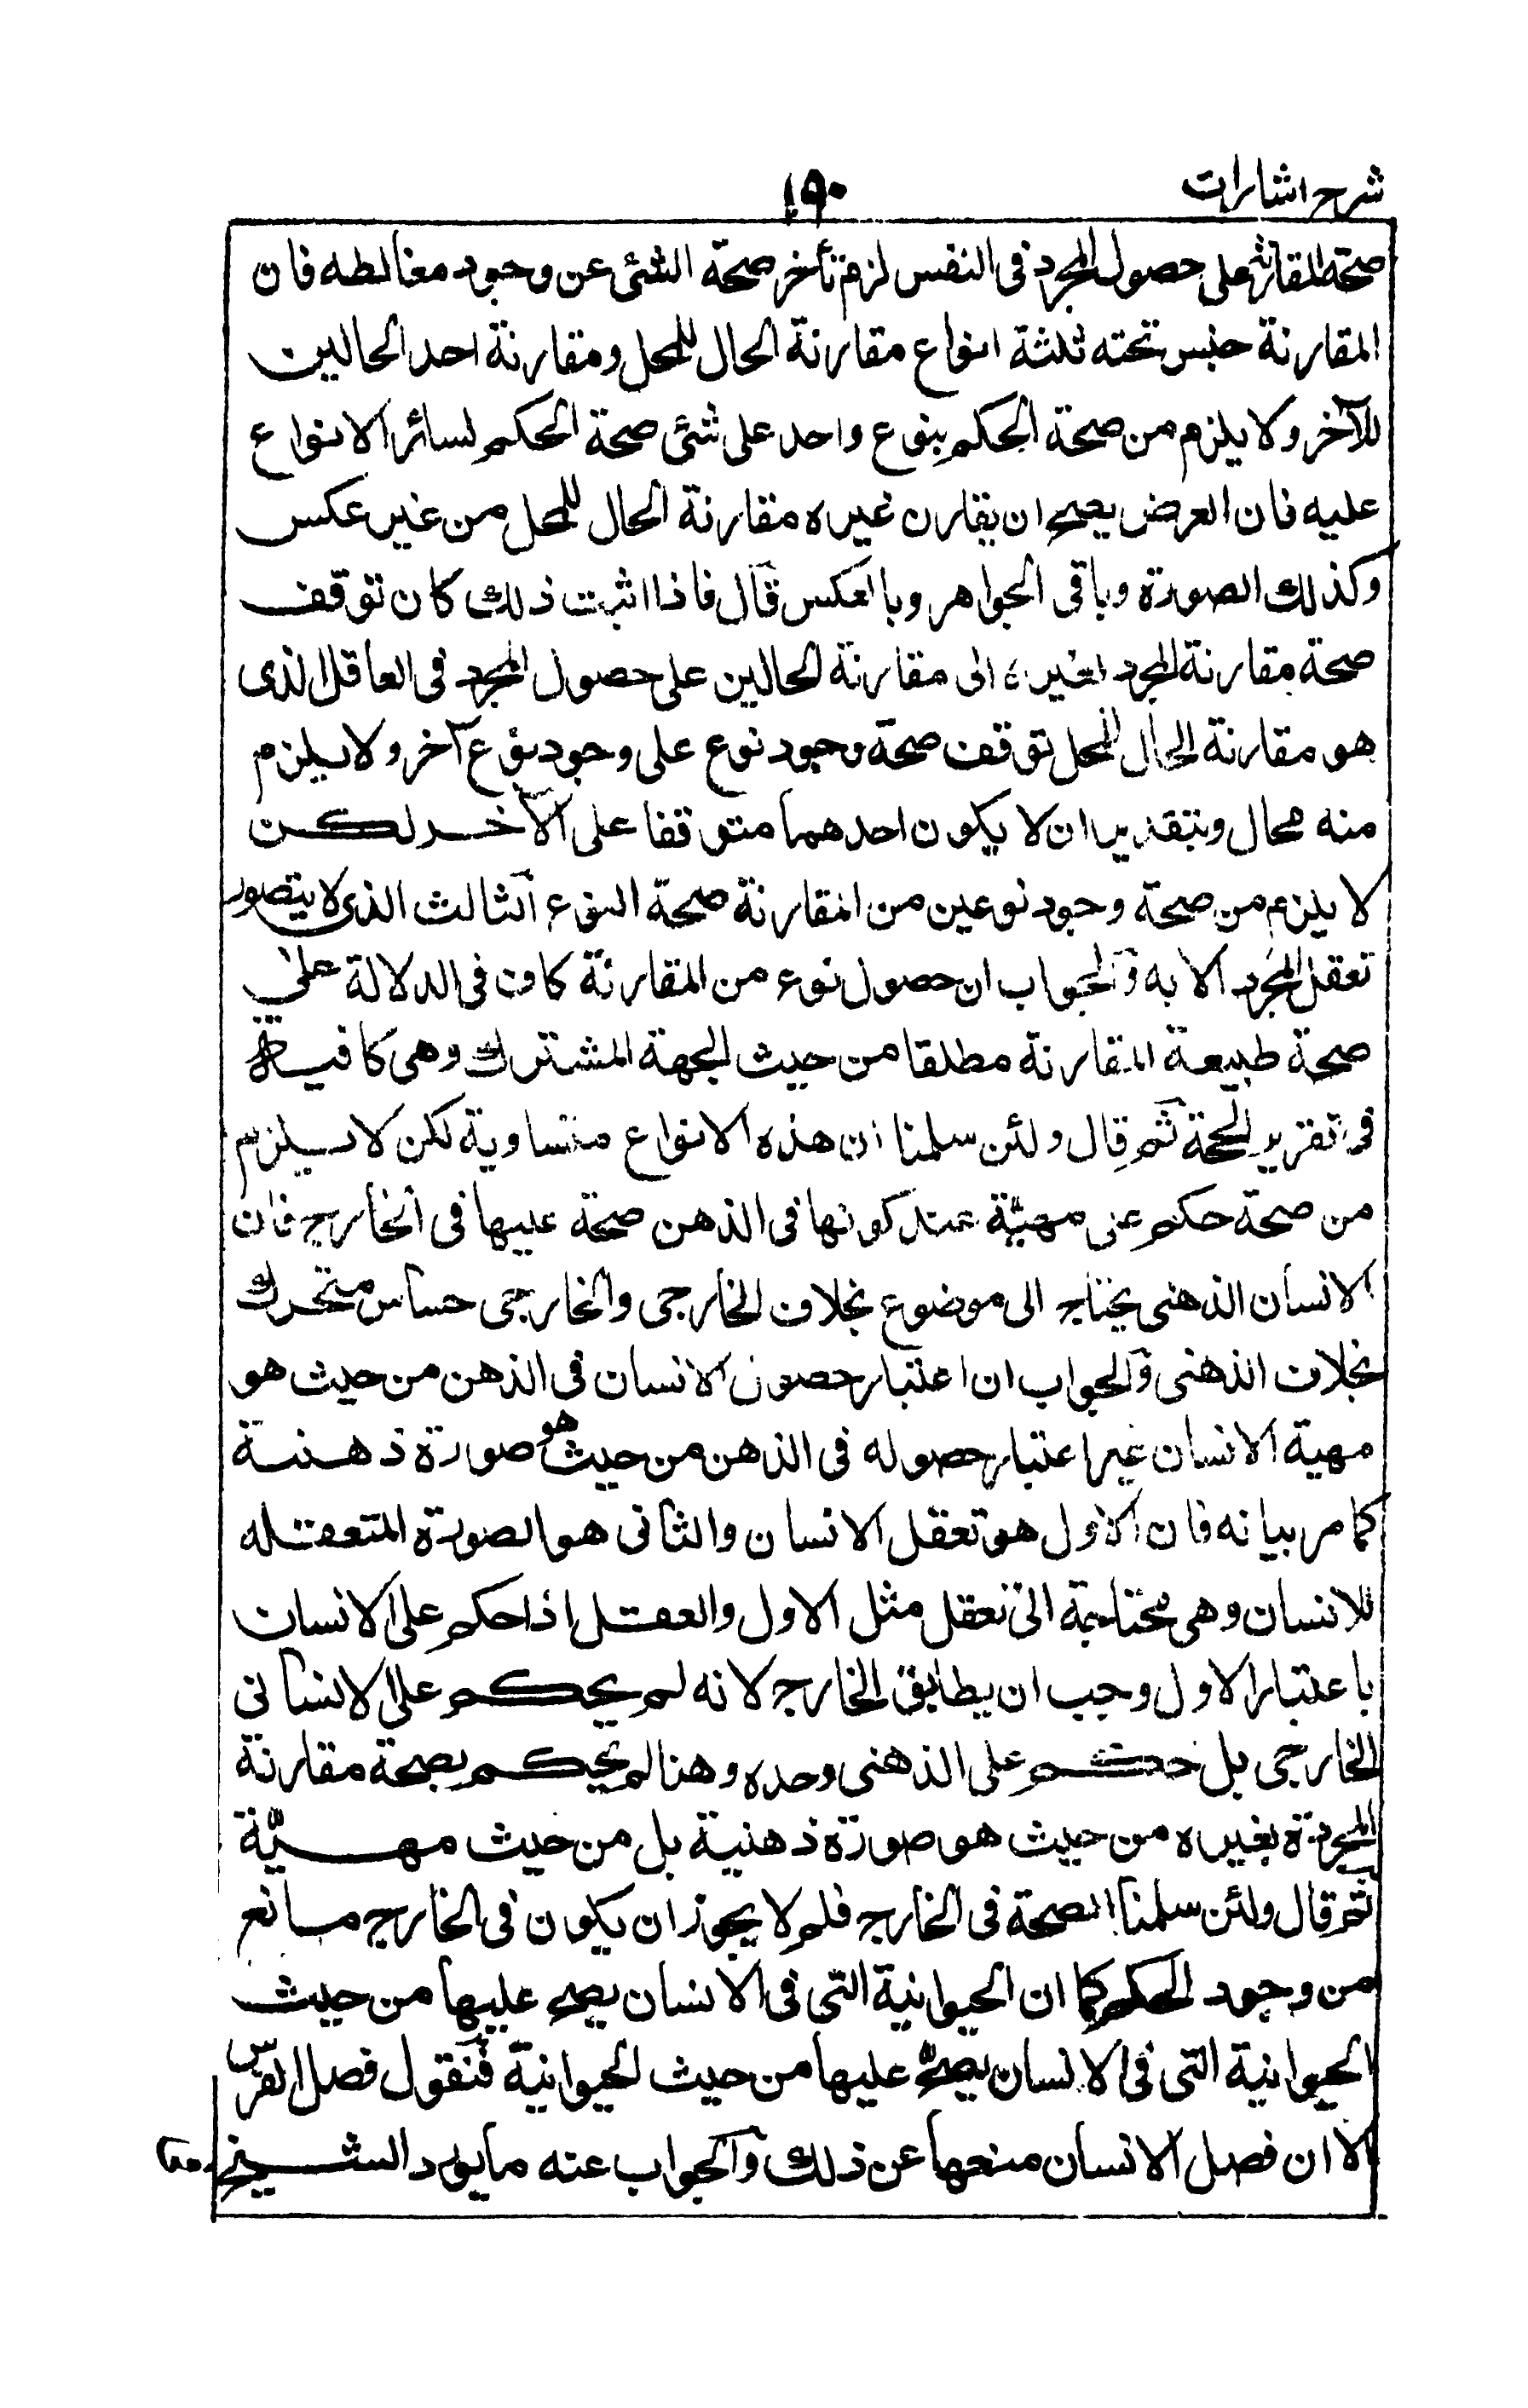 شرح اشارات
١٩٠
صحة المقارنة على حصول المجرد فى النفس لزم تأخر صحة الشئ عن وجود مغالطه فان
المقارنة جنس تحته ثلثة انواع مقارنة الحال للمحل ومقارنة احد الحالين
للآخر ولا يلزم من صحة الحكم بنوع واحد على شئ صحة الحكم لسائر الانواع
عليه فان العرض يصح ان يقارن غيره مقارنة الحال للمحل من غير عكس
وكذلك الصورة وباقى الجواهر وبالعكس قال فاذا اثبت ذلك كان توقف
صحة مقارنة المجرد لغيره الى مقارنة الحالين على حصول المجرد فى العاقل الذى
هو مقارنة الحال للمحل توقف صحة وجود نوع على وجود نوع آخر ولا يلزم
منه محال وبتقدير ان لا يكون احدهما متوقفا على الآخر لكن
لا يلزم من صحة وجود نوعين من المقارنة صحة النوع الثالث الذى لا يتصور
تعقل المجرد الا به والجواب ان حصول نوع من المقارنة كاف فى الدلالة على
صحة طبيعة المقارنة مطلقا من حيث الجهة المشترك وهى كافية
فى تقرير الحجة ثم قال ولئن سلمنا ان هذه الانواع متساوية لكن لا يلزم
من صحة حكم على مهية عند كونها فى الذهن صحة عليها فى الخارج فان
الانسان الذهنى يحتاج الى موضوع بخلاف الخارجى والخارجى حساس متحرك
بخلاف الذهنى والجواب ان اعتبار حصول الانسان فى الذهن من حيث هو
مهية الانسان غير اعتبار حصوله فى الذهن من حيث هو صورة ذهنية
كما مر بيانه فان الاول هو تعقل الانسان والثانى هو الصورة المتعقله
للانسان وهى محتاجة الى تعقل مثل الاول والعقل اذا حكم على الانسان
باعتبار الاول وجب ان يطابق الخارج لانه لم يحكم على الانسانى
الخارجى بل حكم على الذهنى وحده وهنا لم يحكم بصحة مقارنة
المجردة بغيره من حيث هو صورة ذهنية بل من حيث مهيّة
ثم قال ولئن سلمنا الصحة فى الخارج فلم لا يجوز ان يكون فى الخارج مانع
من وجود الحكم كما ان الحيوانية التى فى الانسان يصح عليها من حيث
الحيوانية التى فى الانسان يصح عليها من حيث الحيوانية فنقول فصل الفرس
الا ان فصل الانسان منعها عن ذلك والجواب عنه ما يورد الشيخ